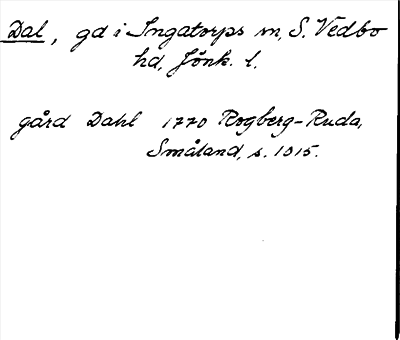 Dal, gd i Ingatorps sn, S. Vedbo
hd, Jönk. l.
gård Dahl 1770 Rogberg-Ruda,
Småland, s. 1015.